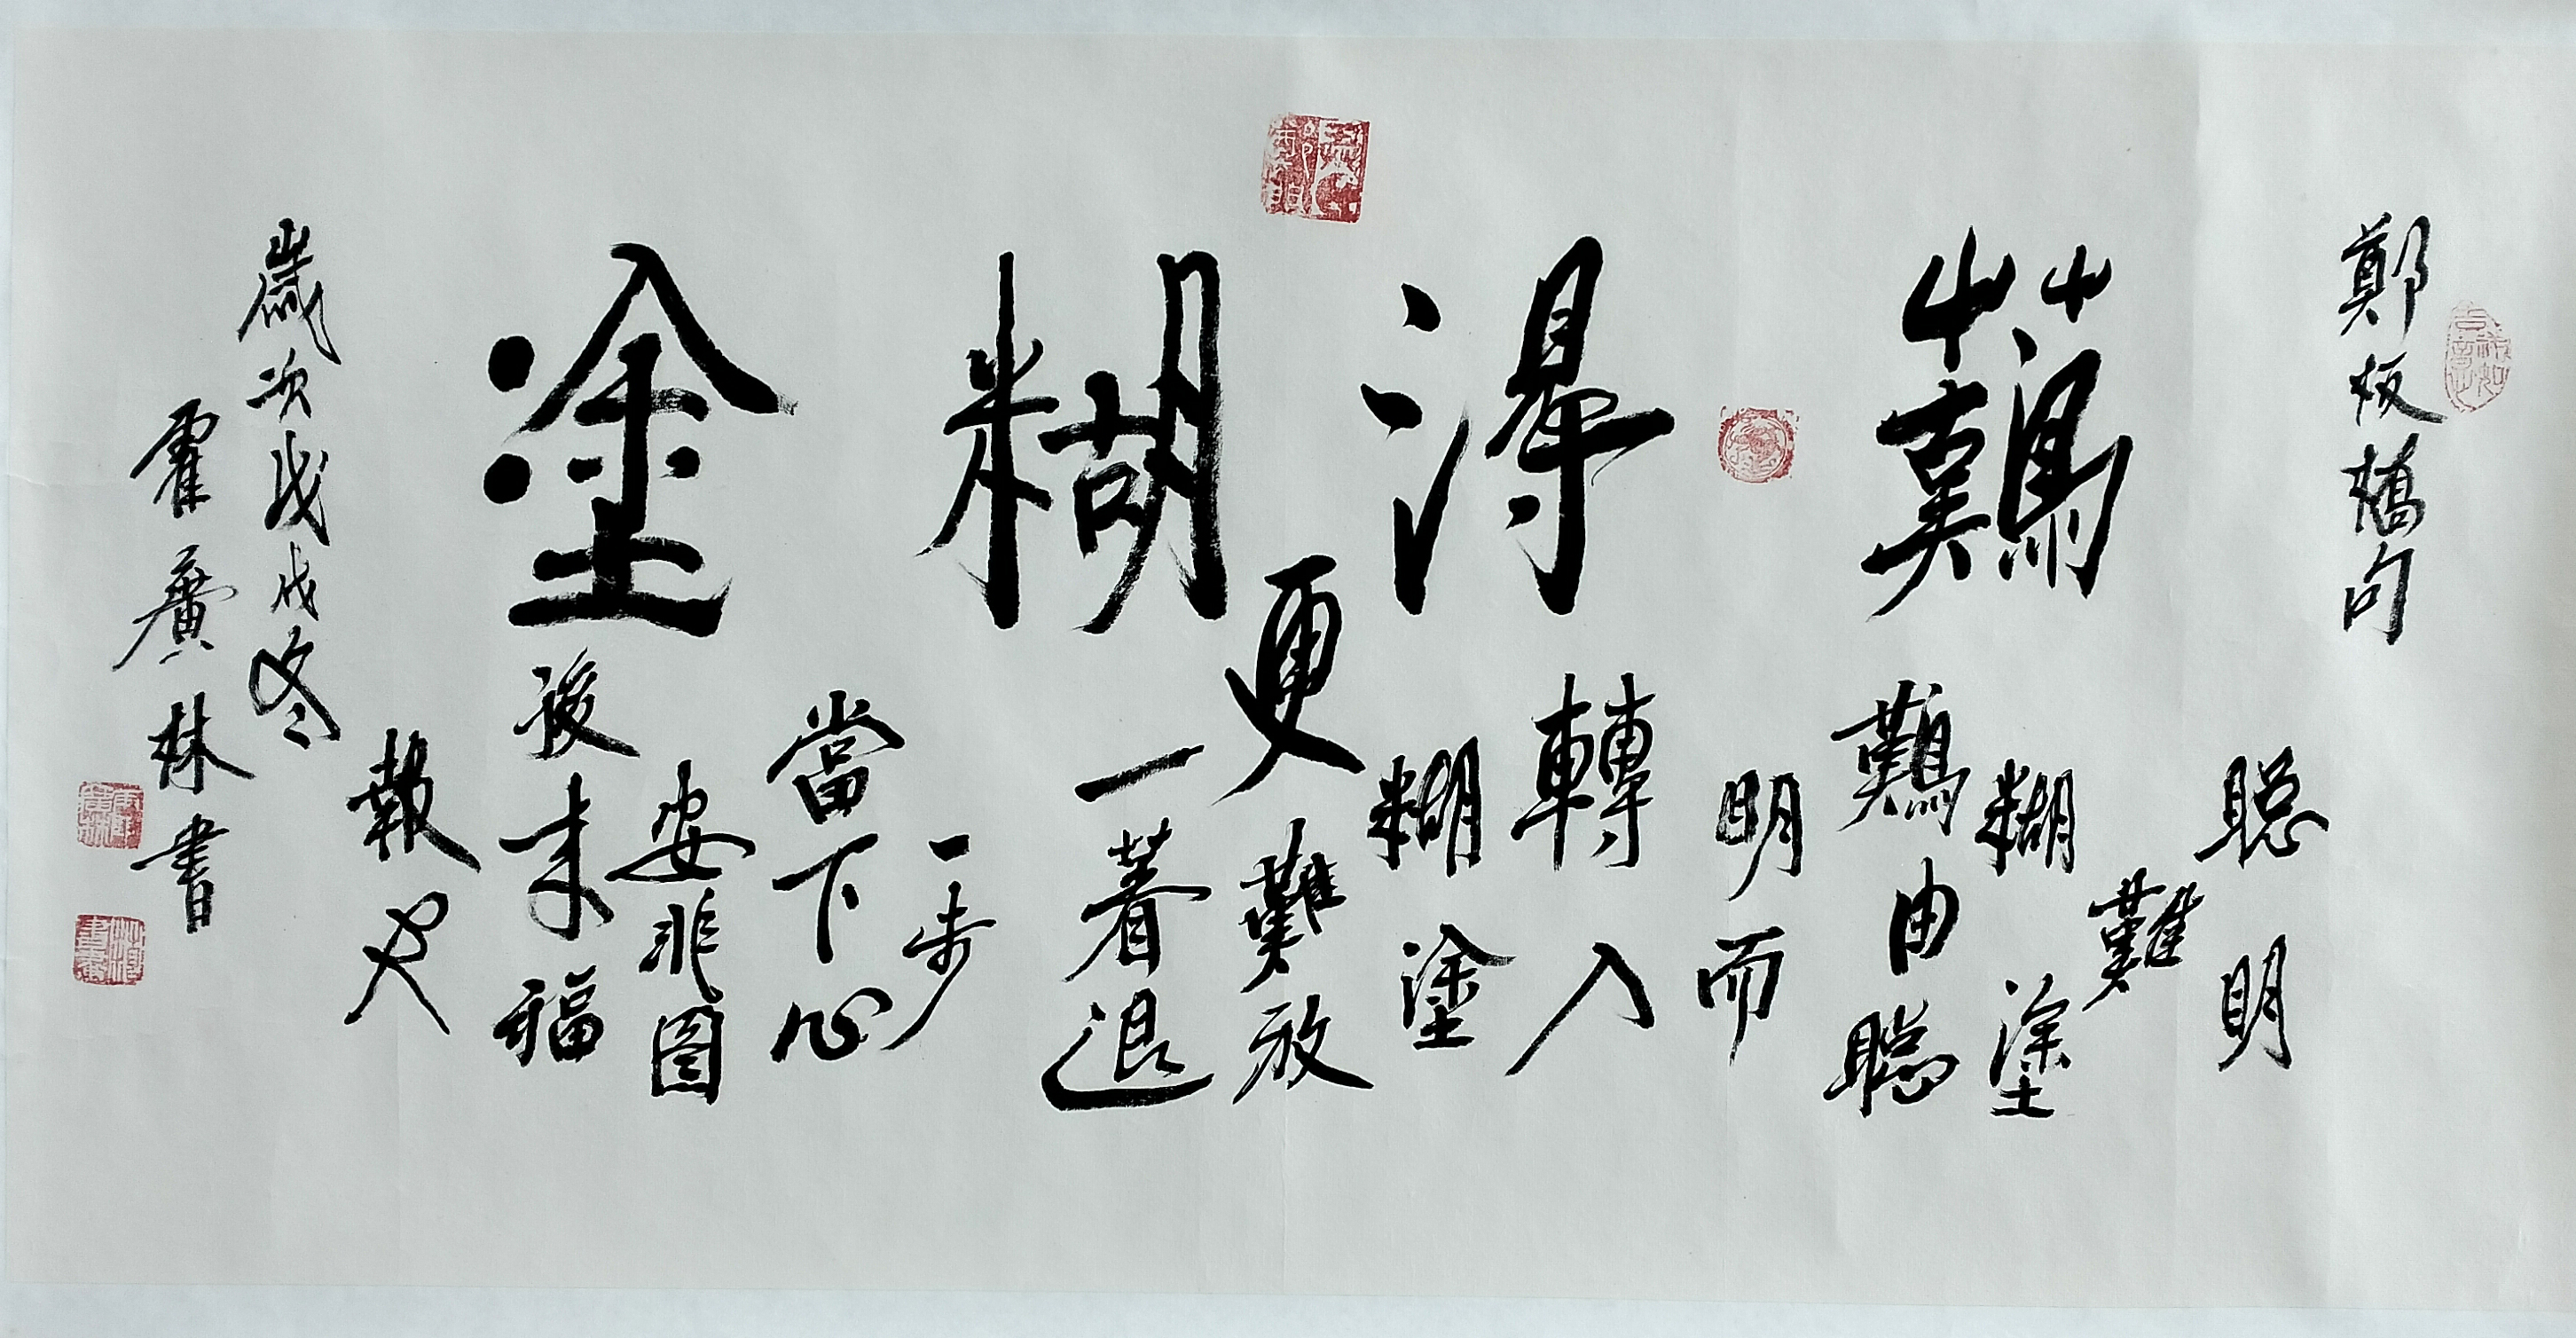 吉祥如意
鄭板橋句
難得糊塗
聰明
難
糊塗
難由聰
明而
轉入
糊塗
更難放
一著退
一步
當下心
安非圖
後来福
報也
歲次戊戌冬
霍廣林書